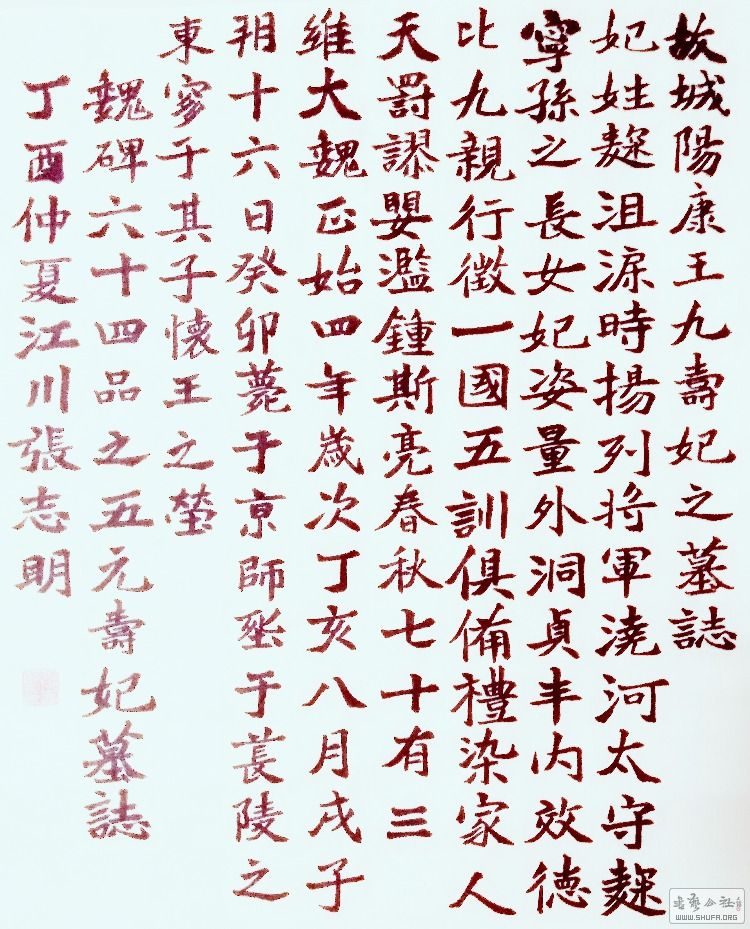 故城陽康王九壽妃之墓誌
妃姓麹沮涙時揚列将軍澆河太守麹
寧孫之長女妃姿量外洞貞丰内效德
比九親行徵一國五訓俱備禮染家人
天罰謬嬰濫鍾斯亮春秋七十有三
維大魏正始四年歲次丁亥八月戊子
朔十六日癸卯薨于京師于萇陵之
東寥于其子懷王之塋
魏碑六十四品之五元壽妃墓誌
丁酉仲夏江川張志明
WWW.SHUFA.ORG